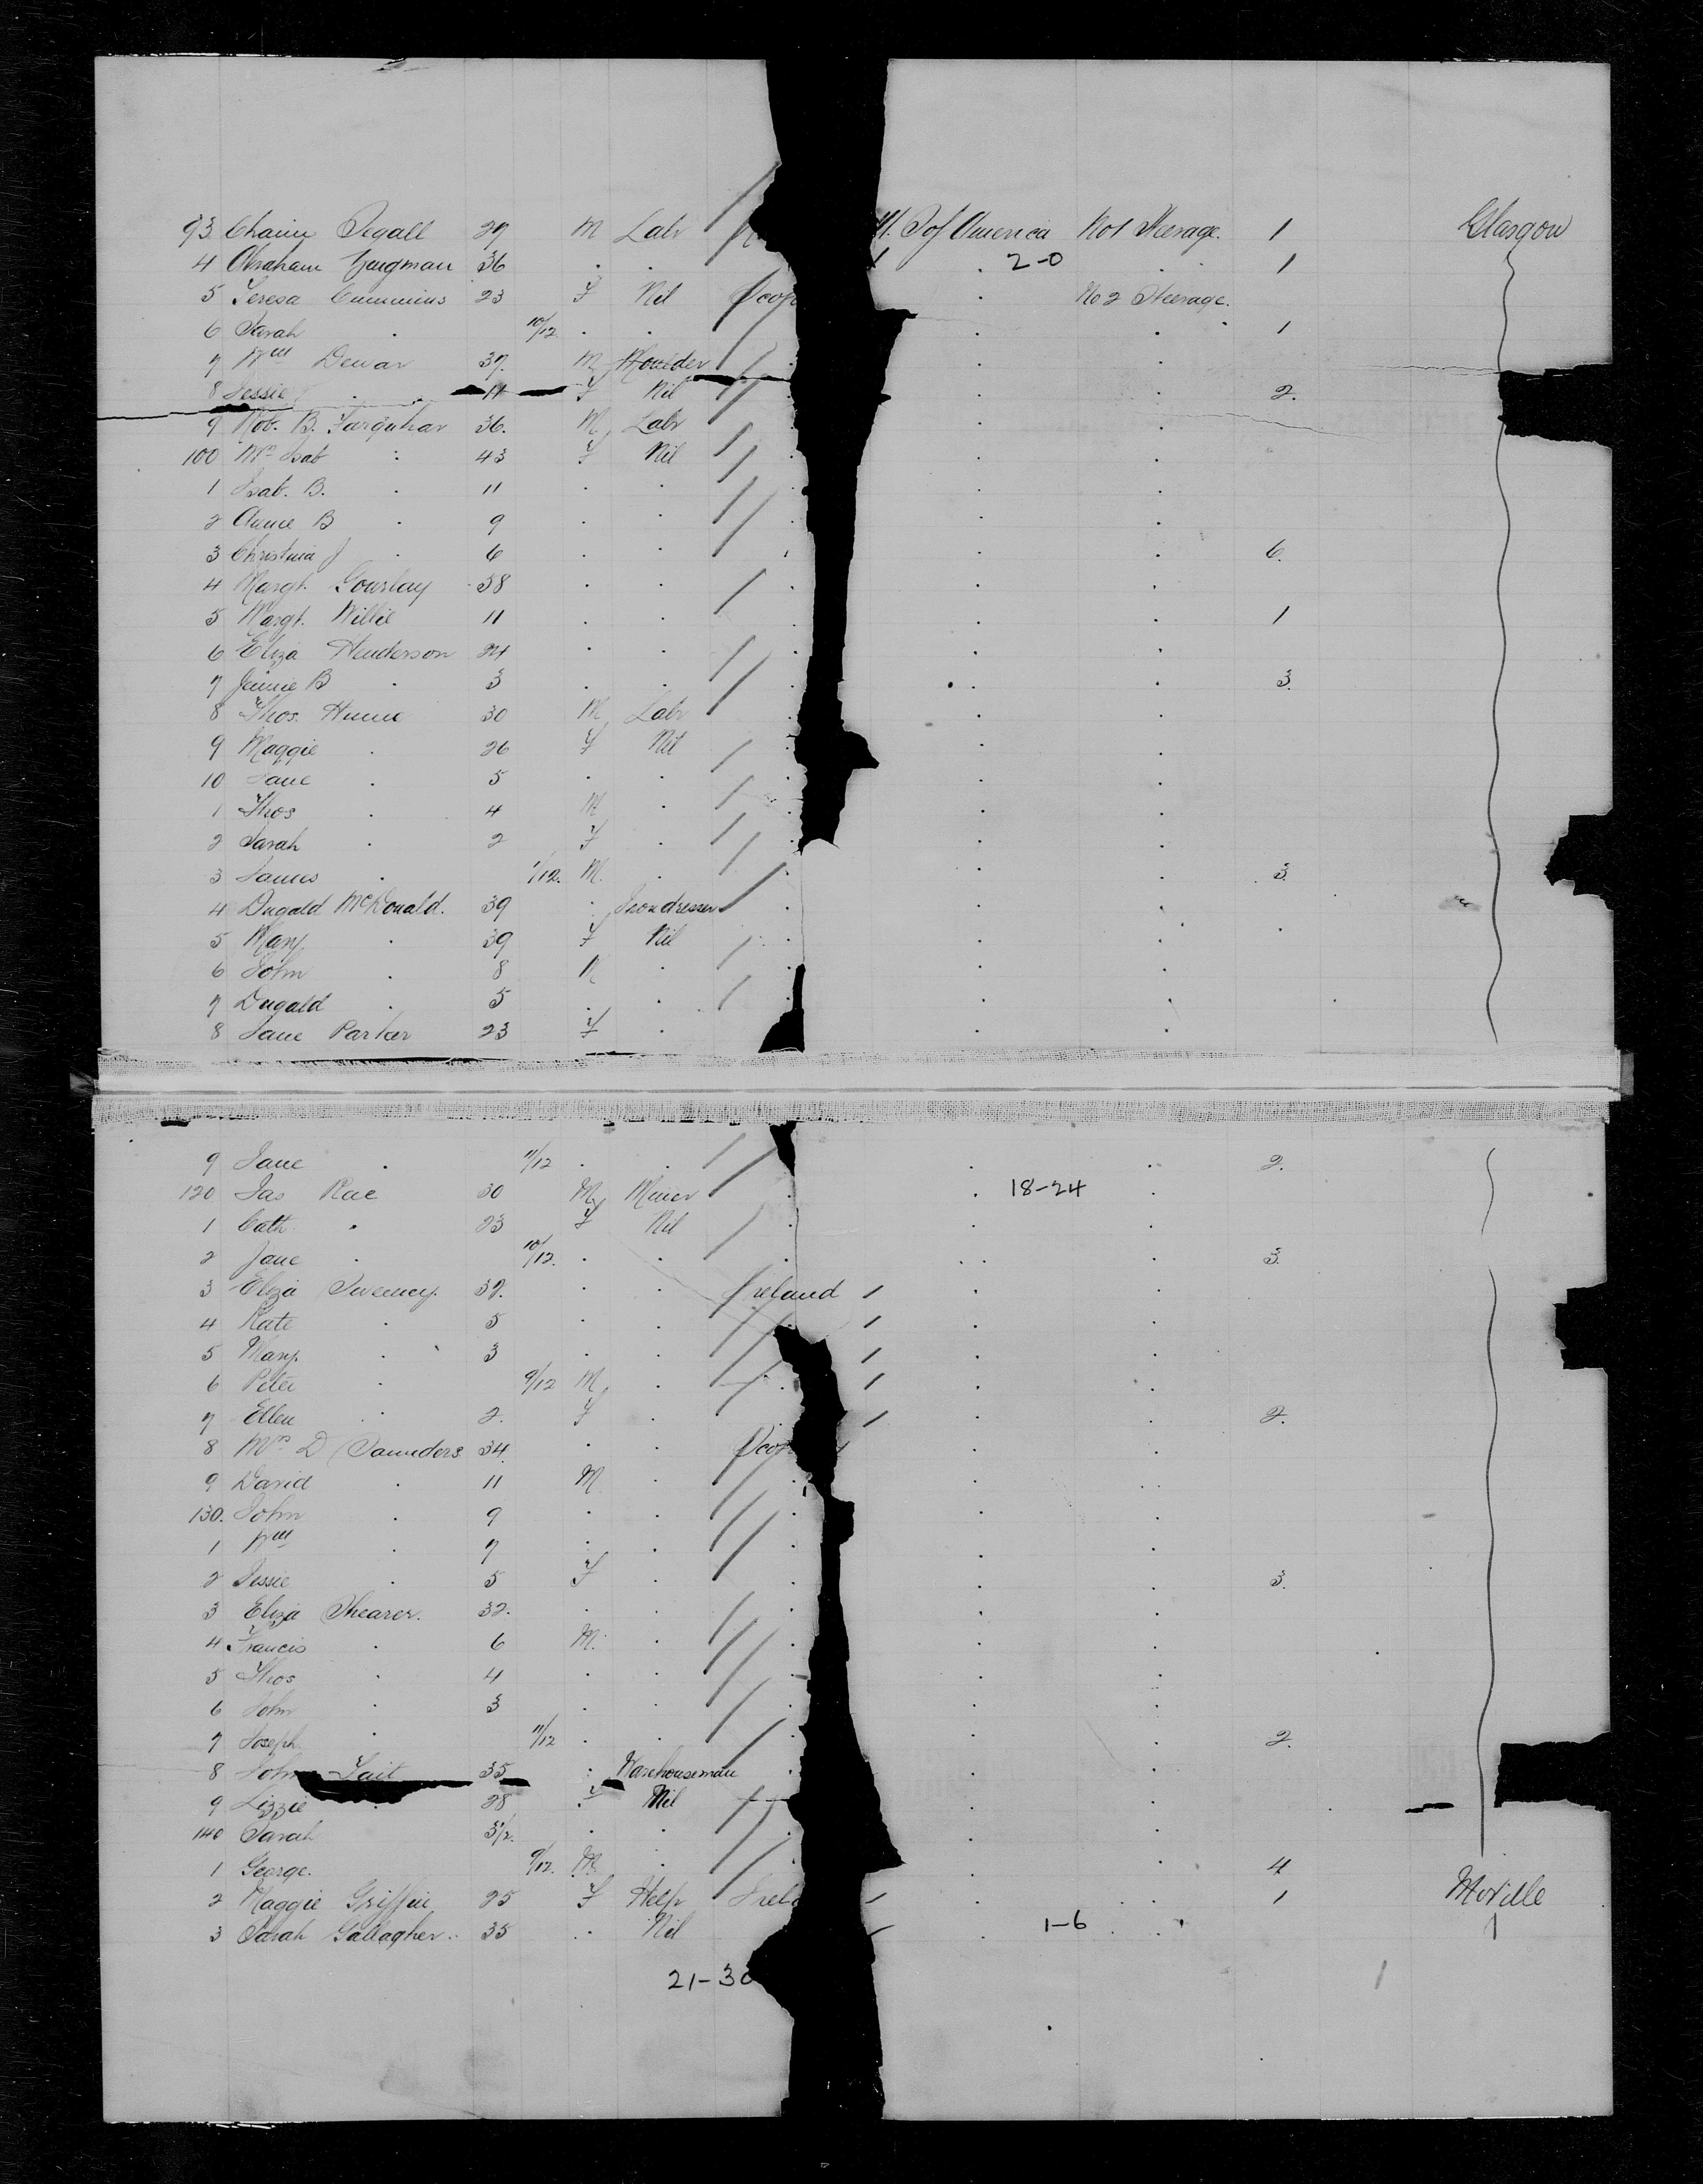 93 Chaim Segall 29 M Labr U. S of America No 1 Steerage. 1 Glasgow
4 Abraham 36 . . 2-0 . 1
5 Teresa Cummins 23 F Nil Scot . No 2 Steerage.
6 Sarah . 10/12 . . . . 1
7 Wm Dewar 37. M Moulder . .
8 Jessie . 11 F Nil . . 2.
9 Rob. B. Farquhar 36. M Labr . .
100 Mrs Isab : 43 F Nil . .
1 Isab. B. . 11 . . . .
2 Annie B . 9 . . . .
3 Christina J . 6 . . . . 6.
4 Margt. Gourlay 38 . . . .
5 Margt. Willie 11 . . . . 1
6 Eliza Henderson 24 . . . .
7 Jeanie B . 3 . . . . 3.
8 Thos. Hume 30 M Labr . .
9 Maggie . 26 F Nil . .
10 Jane . 5 . . . .
1 Thos . 4 M . . .
2 Sarah . 2 F . . .
3 James . 1/12. M. . . . 3.
4 Dugald McDonald. 39 . Irondresser . .
5 Mary . 39 F Nil . .
6 John . 8 M . . .
7 Dugald . 5 . . . .
8 Jane Parker 23 F . . .
9 Jane . 11/12 . . . . 2.
120 Jas Rae 30 M Miner . 18-24 .
1 Cath. . 23 F Nil . .
2 Jane . 10/12. . . . . 3.
3 Eliza Sweeney. 32. . . Ireland 1 . .
4 Kate . 5 . . 1 . .
5 Mary. . 3 . . 1 . .
6 Peter . 9/12 M . 1 . .
7 Ellen . 2. F . 1 . . 2.
8 Mrs D Saunders 34. . . Scot . .
9 David . 11 M . . .
130. John . 9 . . . .
1 Wm . 7 . . . .
2 Jessie . 5 F . . . 3.
3 Eliza Shearer. 32. . . . .
4 Francis . 6 M. . . .
5 Thos . 4 . . . .
6 John . 3 . . . .
7 Joseph . 11/12 . . . . 2.
8 John Tait 35 . Warehouseman . .
9 Lizzie . 28 F Nil . .
140 Sarah 3½. . . . .
1 George. 9/12. M . . . 4
2 Maggie Griffin 25 F Help Irela . . 1 Moville
3 Sarah Gallagher 35 . Nil . 1-6 .
21-30